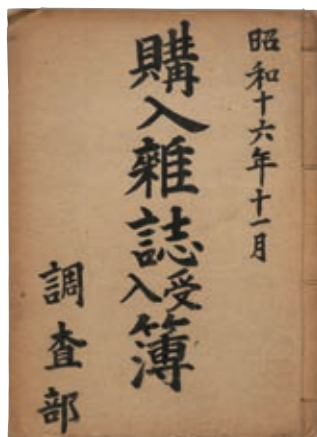 昭和十六年十一月
購入雜誌受入簿
調査部